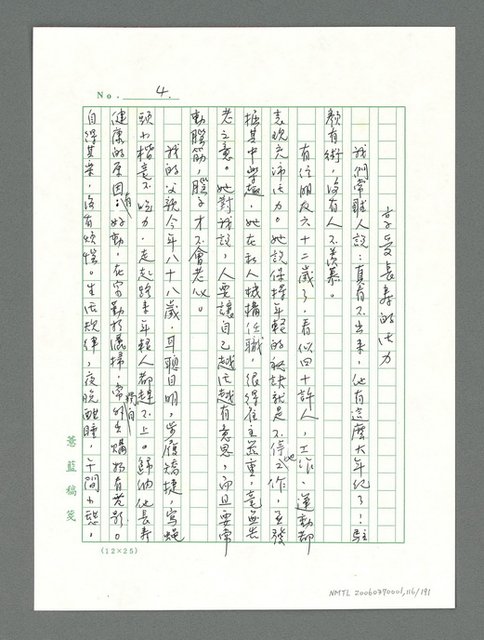 No. 4.
享受長壽的活力
我們常聽人說：真看不出來，他有這麼大年紀了！駐
顏有術，沒有人不羨慕。
有位朋友六十二歲了，看似四十許人，工作、運動都
表現充沛活力。她說保持年輕的祕訣就是不停地工作，並發
掘其中樂趣。她在私人機構任職，很得雇主器重，毫無告
老之意。她對我說，人要讓自己越活越有意思，而且要常
動腦筋，腦子才不會老化。
我的父親今年八十八歲，耳聰目明，步履矯捷，寫蠅
頭小楷毫不吃力，走起路來年輕人都趕不上。歸納他長壽
健康的原因：有好動，在家勤於灑掃，常獨自外出購物看光影。
自得其樂，沒有煩惱。生活規律，夜晚酣睡，午間小憩，
薈藍稿箋
(12×25)
NMTL 20060390001,116/191